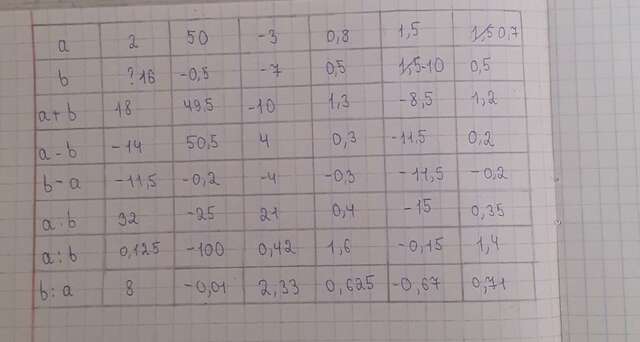 a 2 50 -3 0,8 1,5 1,5 0,7
b ? 16 -0,5 -7 0,5 1,5-10 0,5
a+b 18 49,5 -10 1,3 -8,5 1,2
a-b -14 50,5 4 0,3 -11,5 0,2
b-a -11,5 -0,2 -4 -0,3 -11,5 -0,2
a·b 32 -25 21 0,4 -15 0,35
a:b 0,125 -100 0,42 1,6 -0,15 1,4
b:a 8 -0,01 2,33 0,625 -0,67 0,71